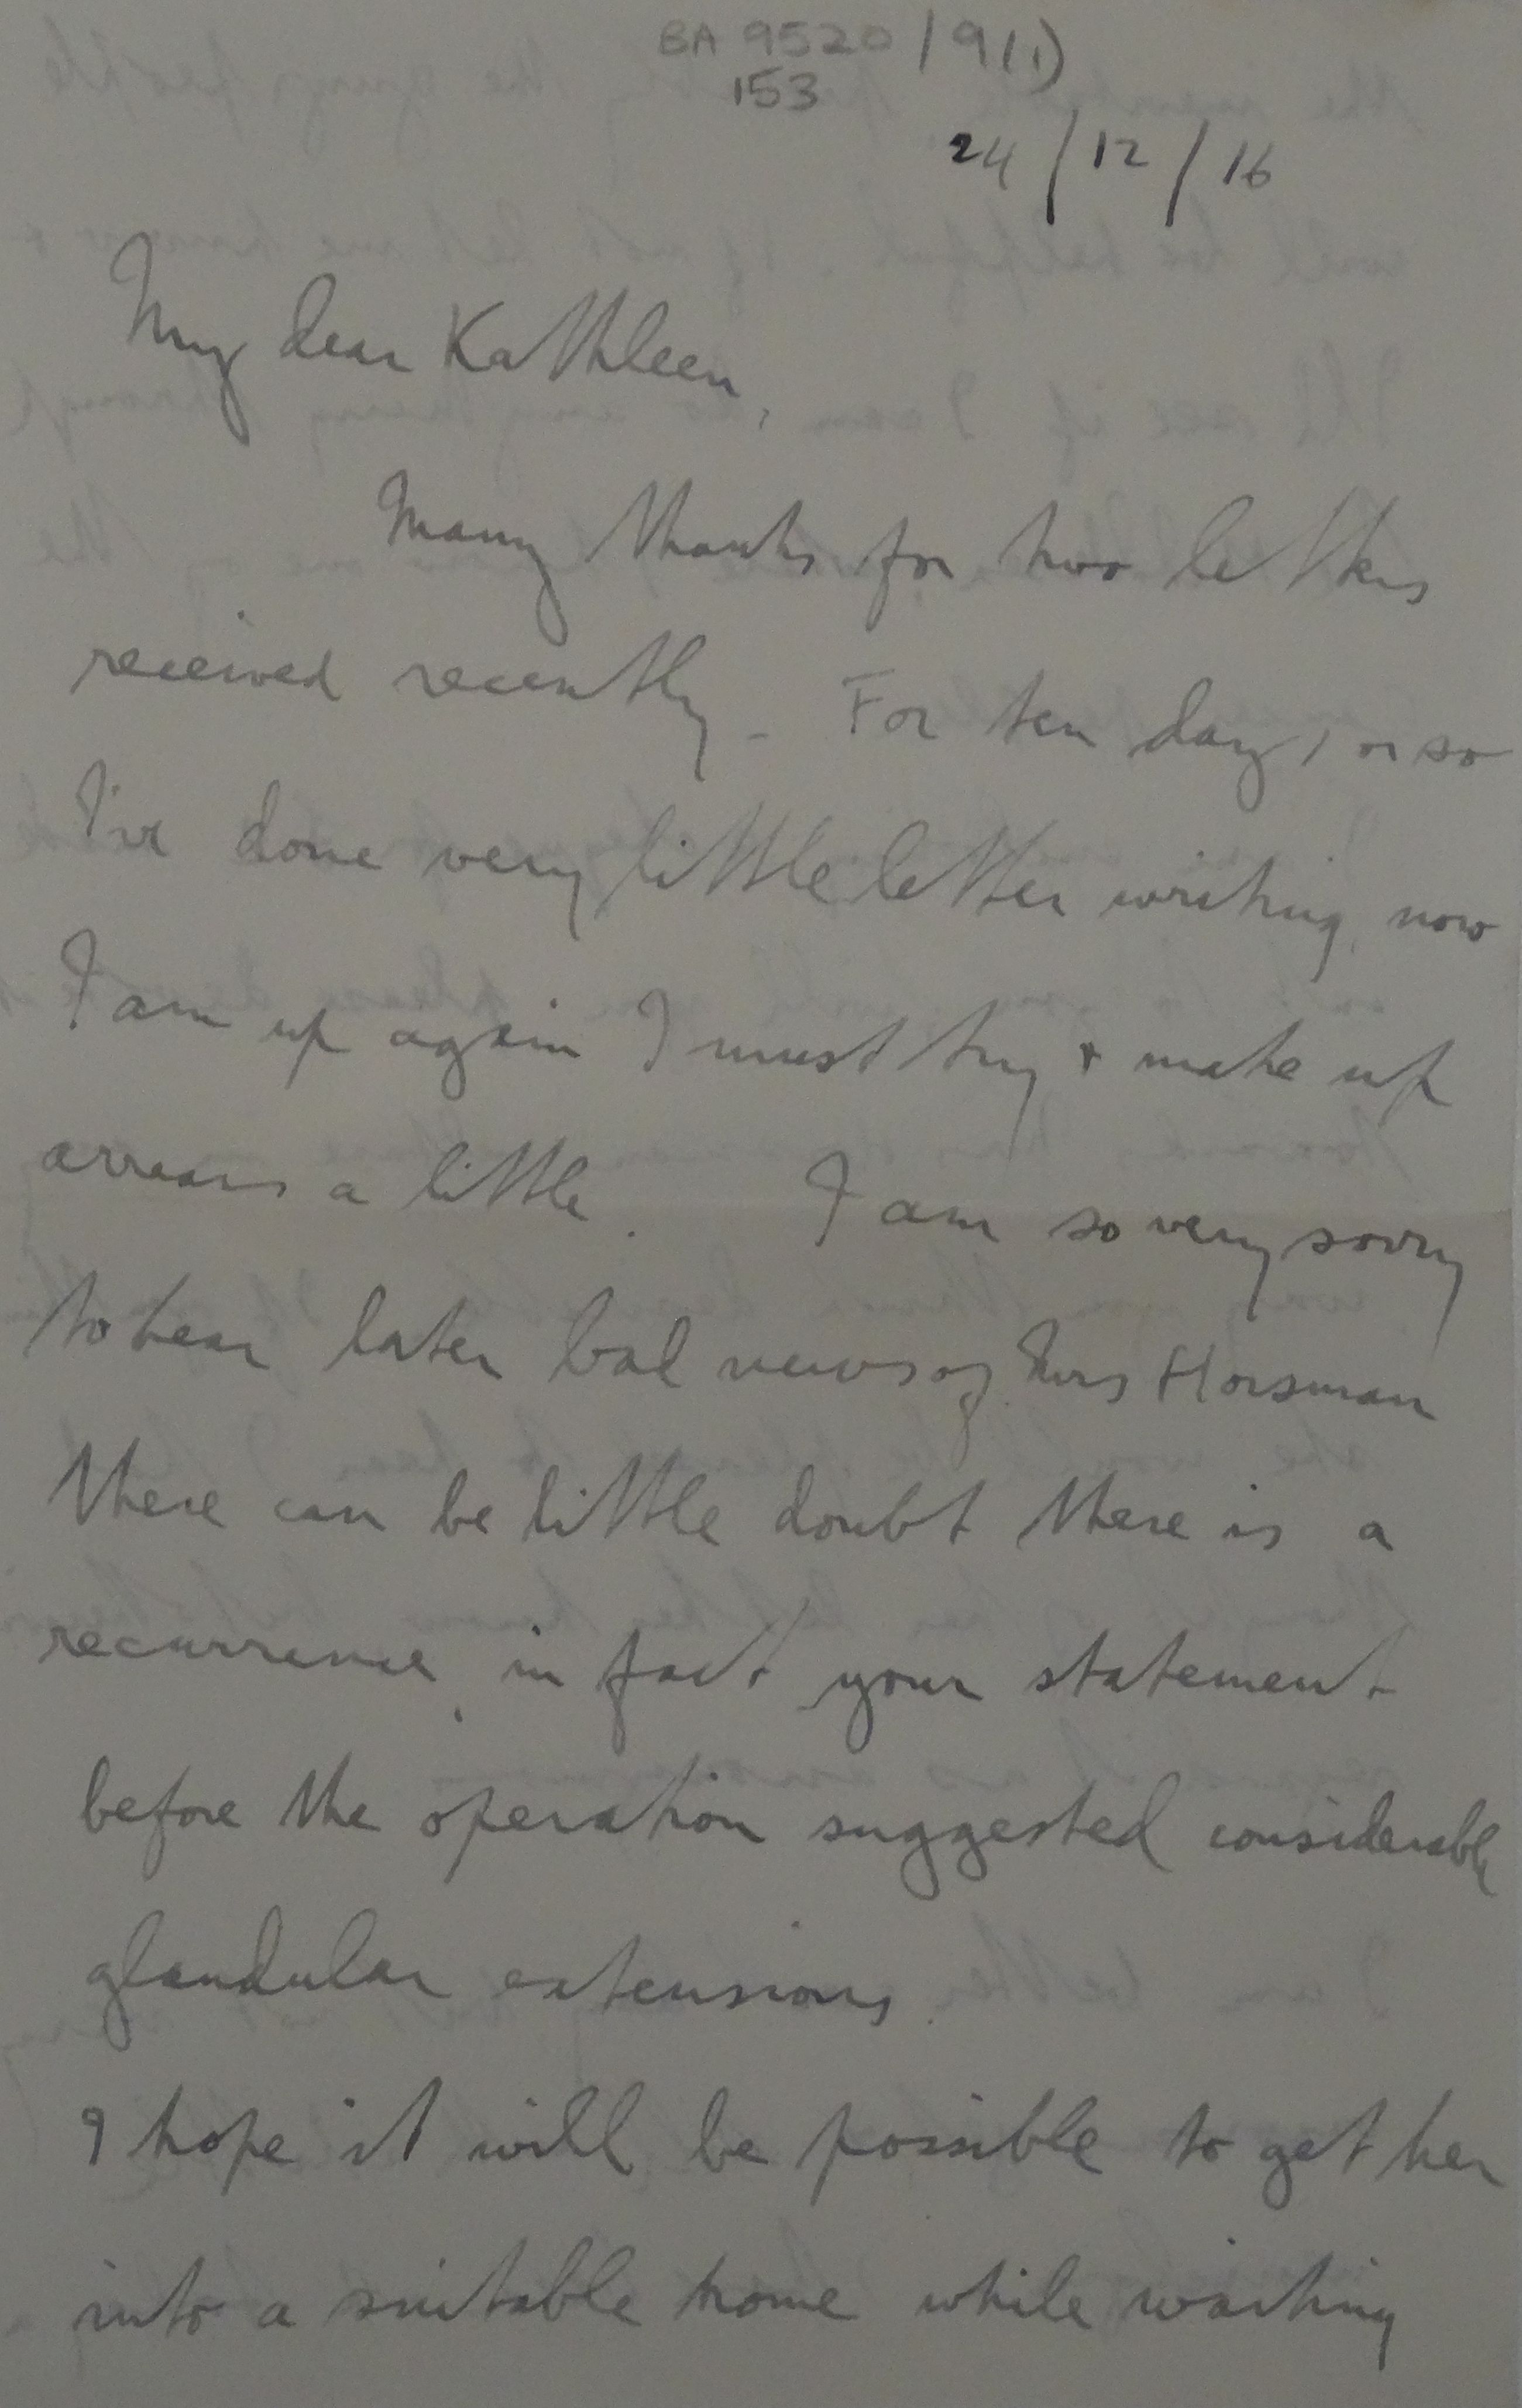 BA 9520/9(1)
153
24/12/16
My dear Kathleen,
Many thanks for two letters
received recently. For ten days or so
I've done very little letter writing, now
I am up again I must try & make up
arrears a little. I am so very sorry
to hear later bad news of Mrs Horsman
there can be little doubt there is a
recurrence, in fact your statement
before the operation suggested considerable
glandular extensions.
I hope it will be possible to get her
into a suitable home while waiting